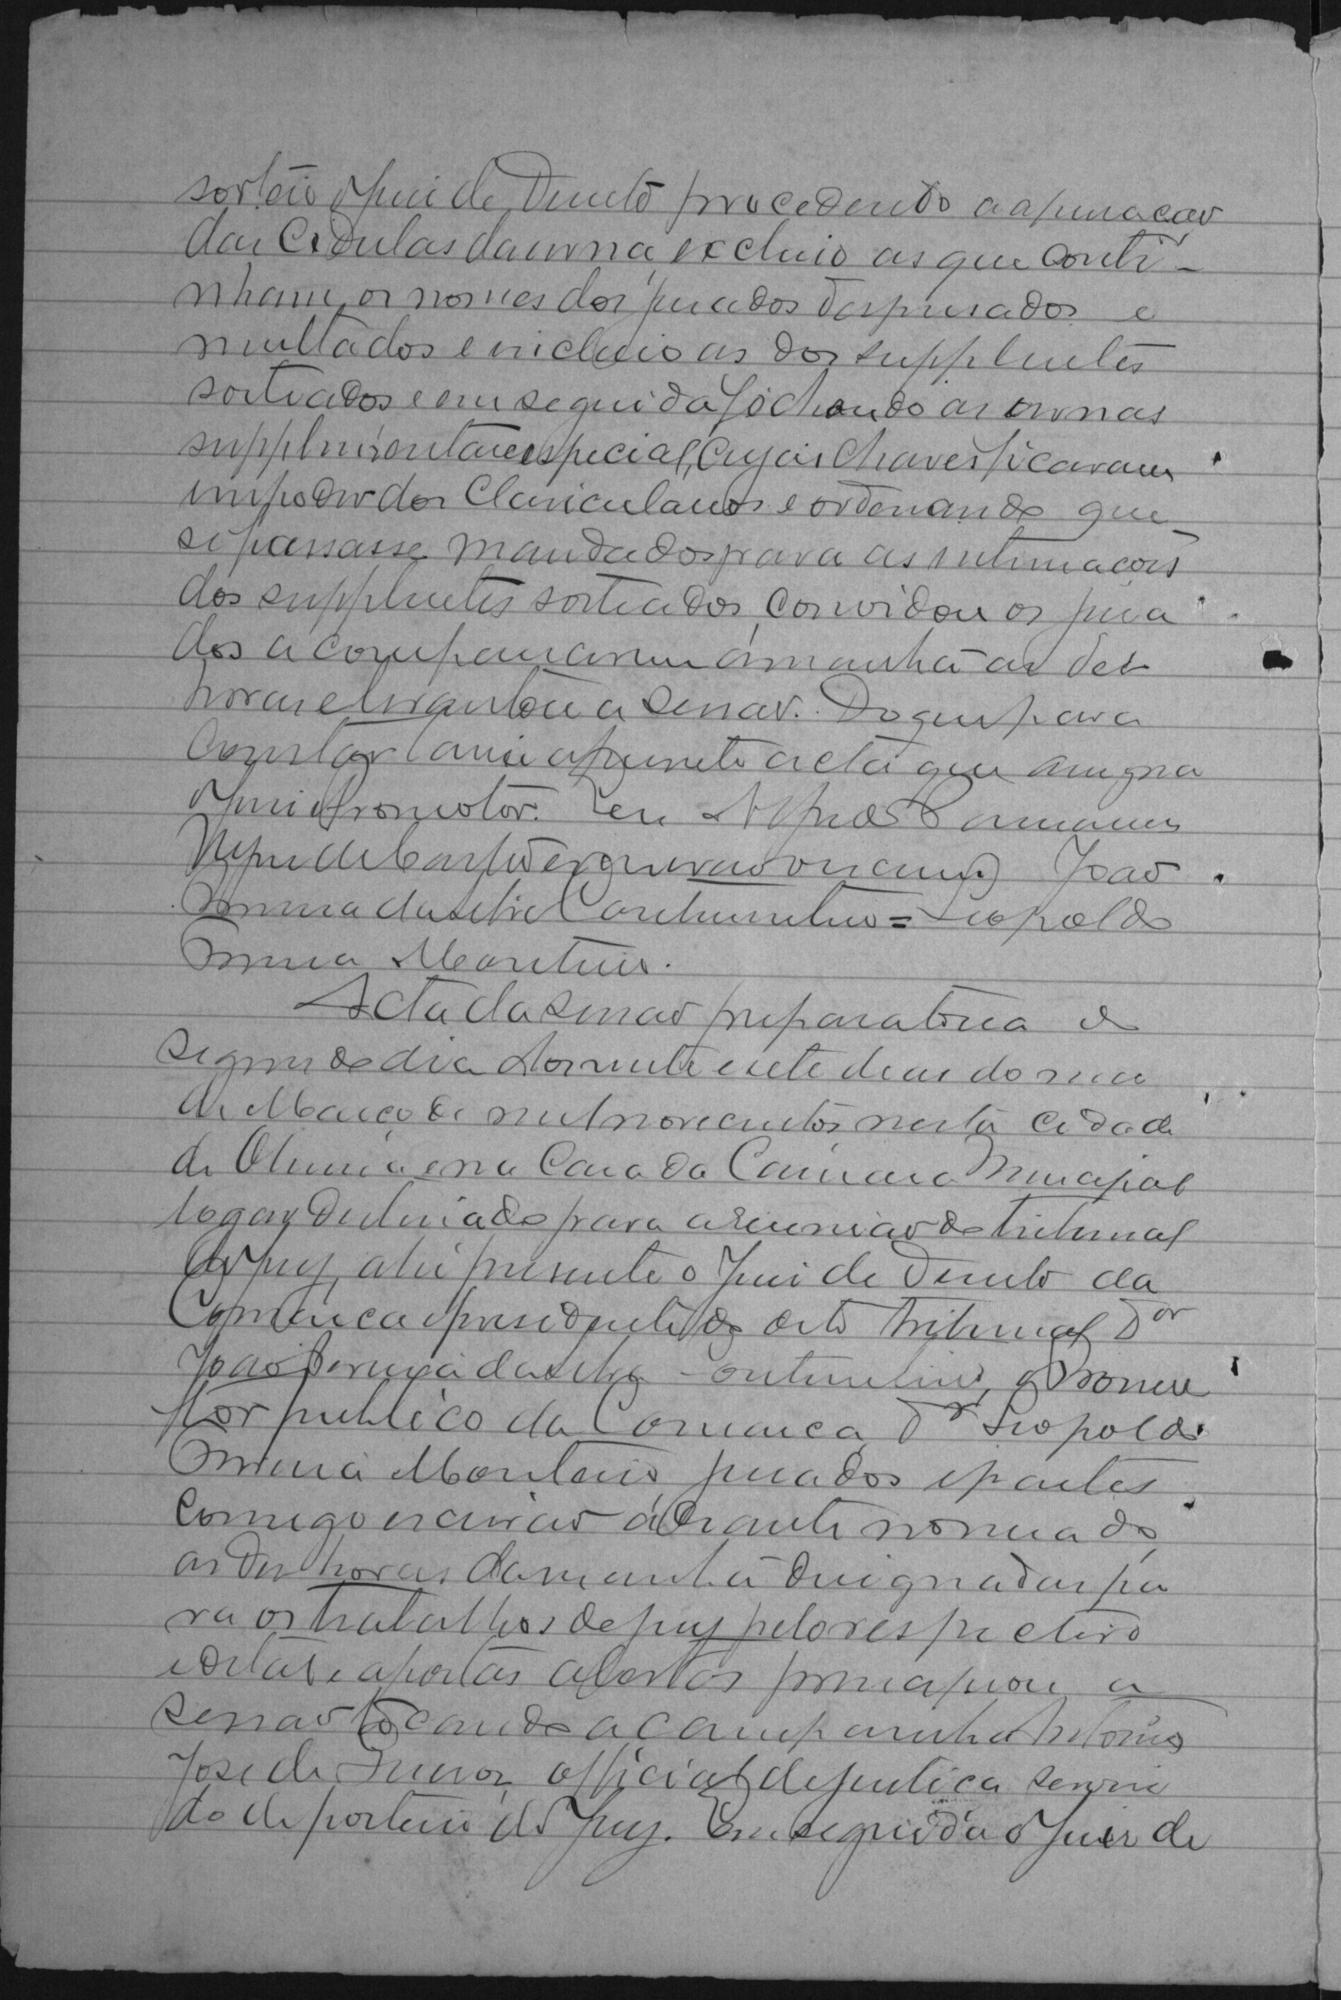 sorteio o Juiz de Direito procedendo a apuração
das Cedulas da urna, excluio as que conti-
nham os nomes dos jurados dispensados e
multados e incluio as dos supplentes
sorteados e em seguida fechando as urnas
supplementar e especial, cujas chaves ficaram
em poder dos Claviculario e ordenando que
se passasse mandados para as intimações
dos supplentes sorteados, convidou os jura
dos a comparecerem ámanhã as dez
horas e levantou a sessão. Do que para
constar lavrei a presente acta que assigna
o Juiz e Promotor. Eu Alfredo
de escrivão o escrevi) João
Ferreira da Silva Coutinho = Leopoldo
Monteiro.
Acta da sessão preparatoria do
segundo dia Aos vinte e sete dias do mez
de Março de mil novecentos nesta cidade
de e na Casa da Camara Municipal
logar destinado para a reunião do tribunal
do Jury, ahi presente o Juiz de Direito da
Comarca e presidente do dito tribunal Dor
João Ferreira da Silva Coutinho, o Promo
tor publico da Comarca Dr Leopoldo
Monteiro, jurados e partes
comigo escrivão adiante nomeado
as dez horas da manhã designadas pa
ra os trabalhos do jury pelo respectivo
edital e a portas abertas principiou a
sessão tocando a campainha Antonio
José de official de justiça servin
do de porteiro do Jury. Em seguida o Juiz de